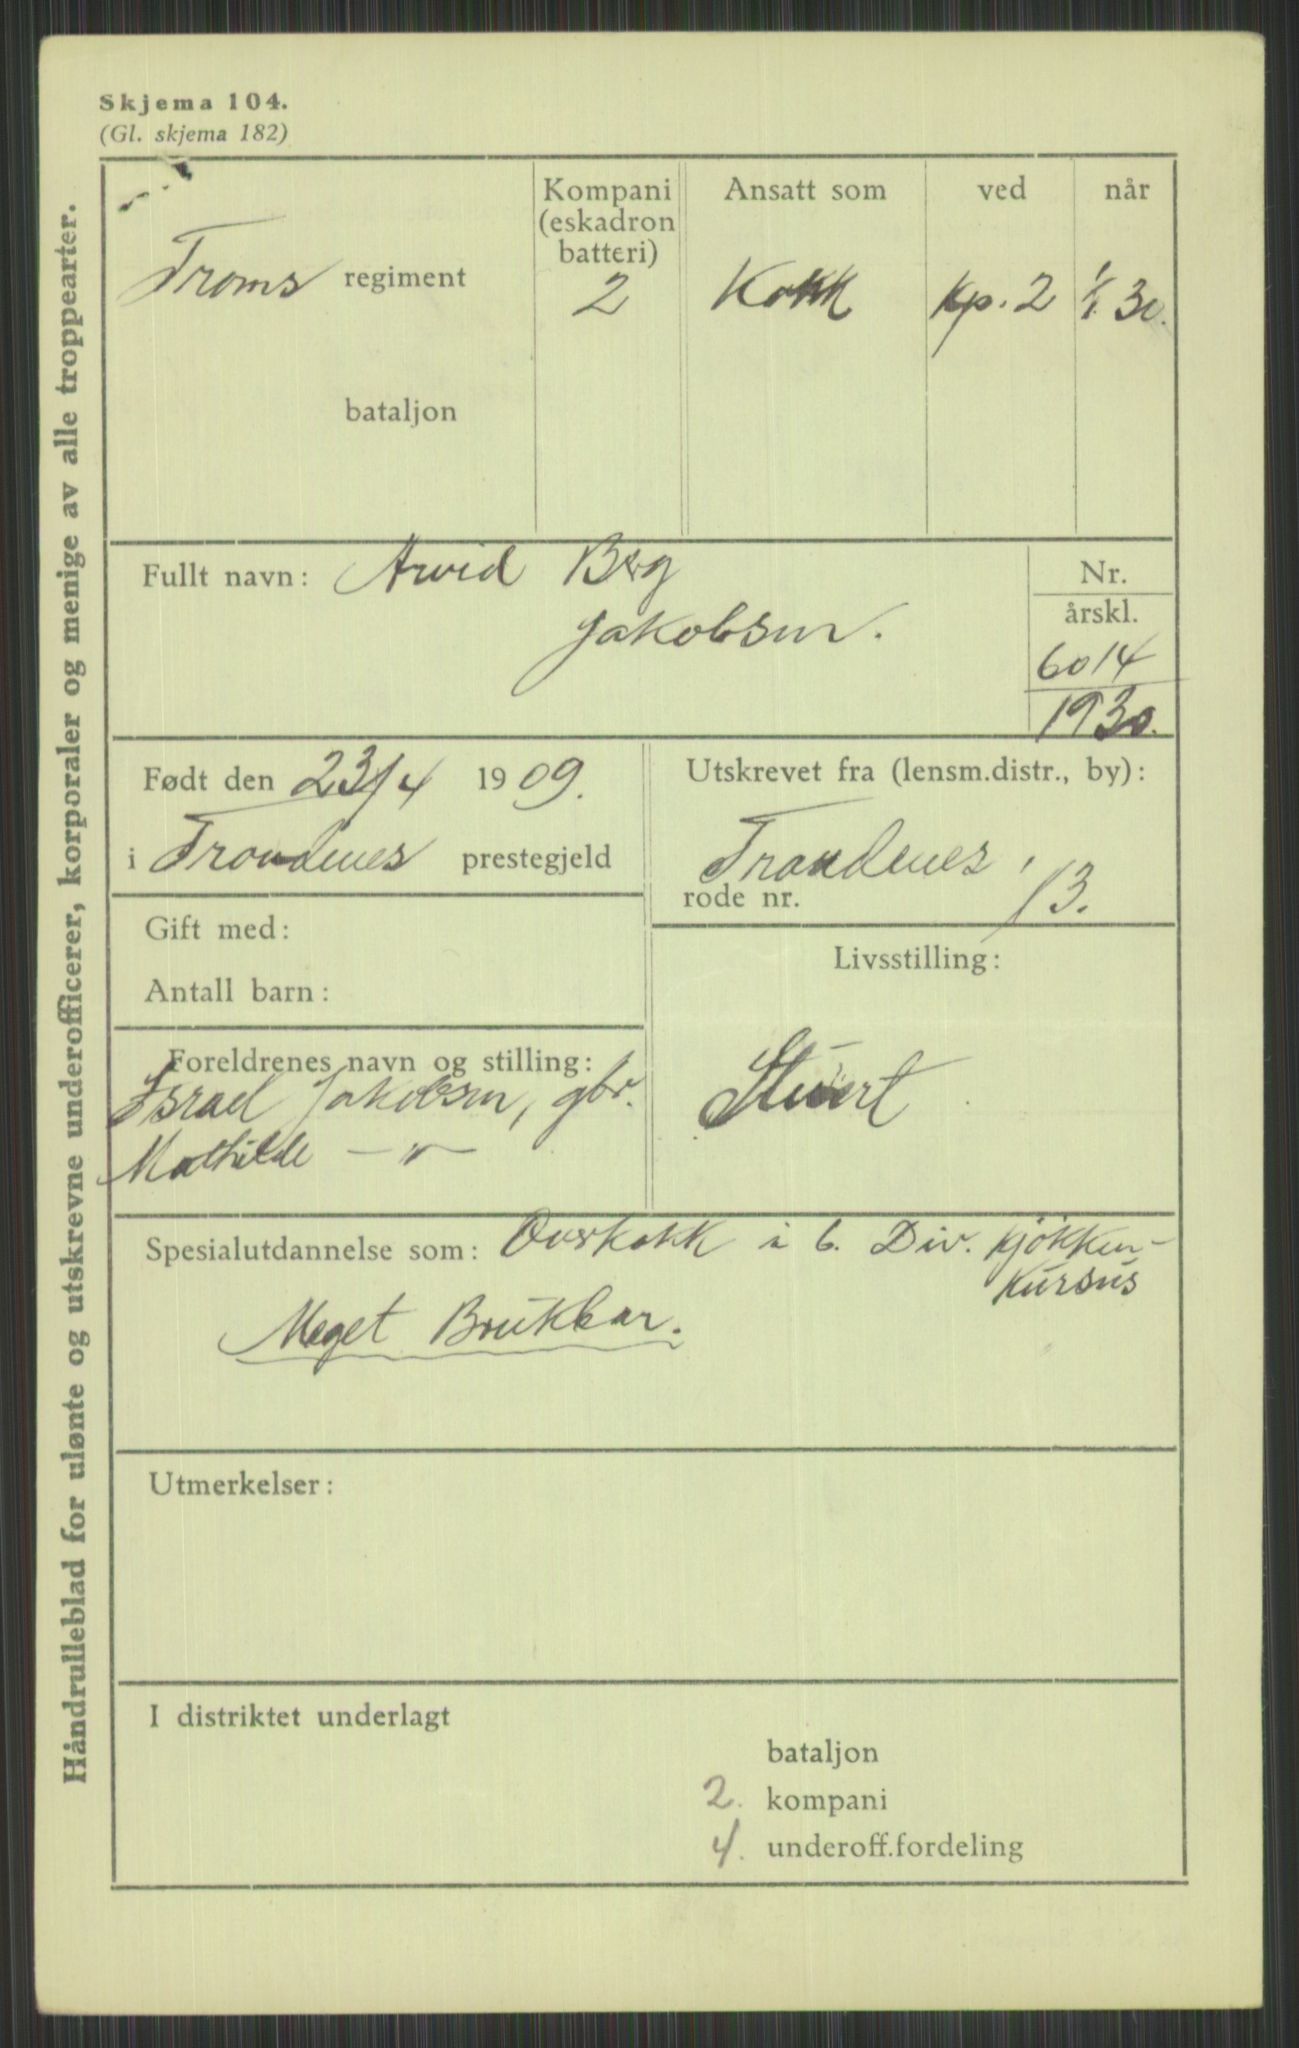 Skjema 104.
(Gl. skjema 182)
Håndrulleblad for ulønte og utskrevne underofficerer, korporaler og menige av alle troppearter.
Troms regiment
bataljon
Kompani
(eskadron
batteri)
2
Ansatt som
Kokk
ved
Kp. 2
når
1/1 30.
Fullt navn: Arvid Berg
Jakobsen.
Nr.
årskl.
6014
1930.
Født den 23/4 1909.
i Trondenes prestegjeld
Utskrevet fra (lensm.distr., by):
Trondenes
rode nr. 13.
Gift med:
Antall barn:
Livsstilling:
Stuert
Foreldrenes navn og stilling:
Israel Jakobsen, gbr.
Mathilde —"—
Spesialutdannelse som: Overkokk i 6. Div. Kjøkken-
Kursus
Meget Brukbar.
Utmerkelser:
I distriktet underlagt
bataljon
2. kompani
4. underoff.fordeling